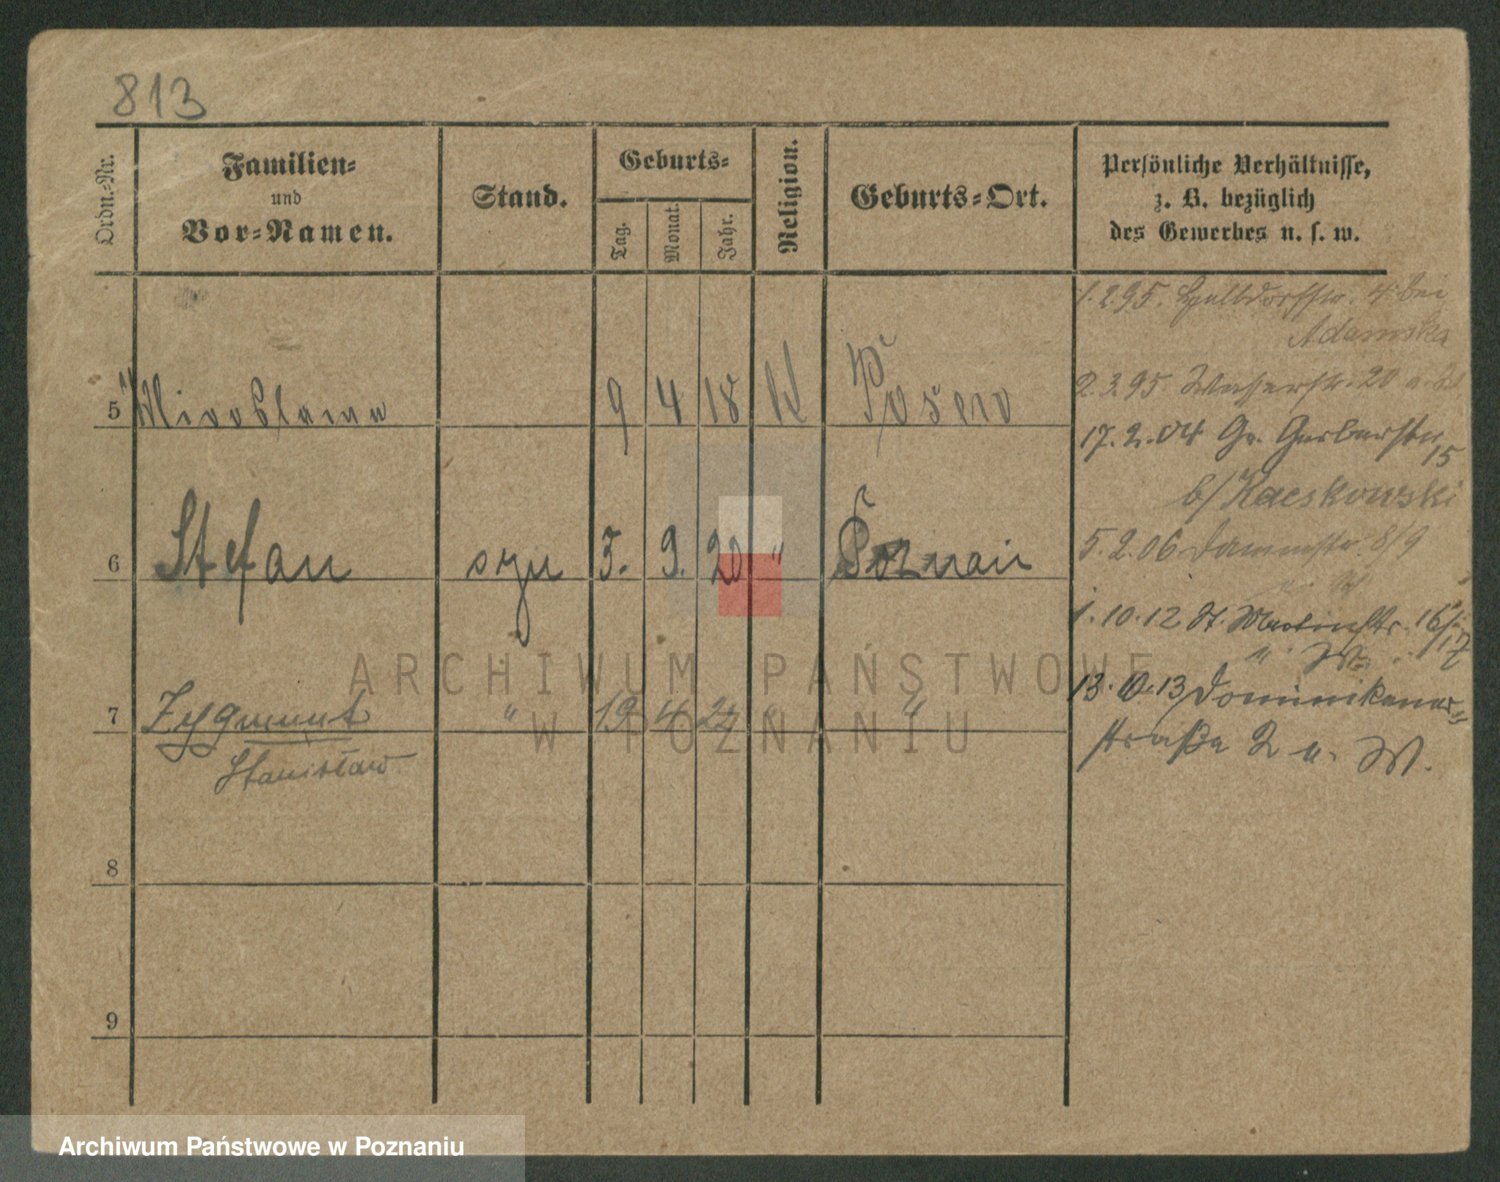 813
Ordn.-Nr.
Familien-
und
Vor-Namen.
Stand.
Geburts-
Tag.
Monat.
Jahr.
Religion.
Geburts-Ort.
Persönliche Verhältnisse,
z. B. bezüglich
des Gewerbes u. s. w.
1.2.95. 4 bei
Adamska
5 Miroslawa 9 4 18 K Posen
2.3.95 Wasserstr. 20
17.2.04 Gr. Gerberstr.
15
b/ Kaczkowski
6 Stefan syn 3. 9. 20 " Poznań
5.2.06 Dammstr. 8/9
1.10.12 St. Martinstr. 16/17
" W.
7 Zygmunt " 19 4 22 " "
Stanisław
13.10.13 Dominikaner-
straße 2 u. W.
8
9
ARCHIWUM PAŃSTWOWE
W POZNANIU
Archiwum Państwowe w Poznaniu